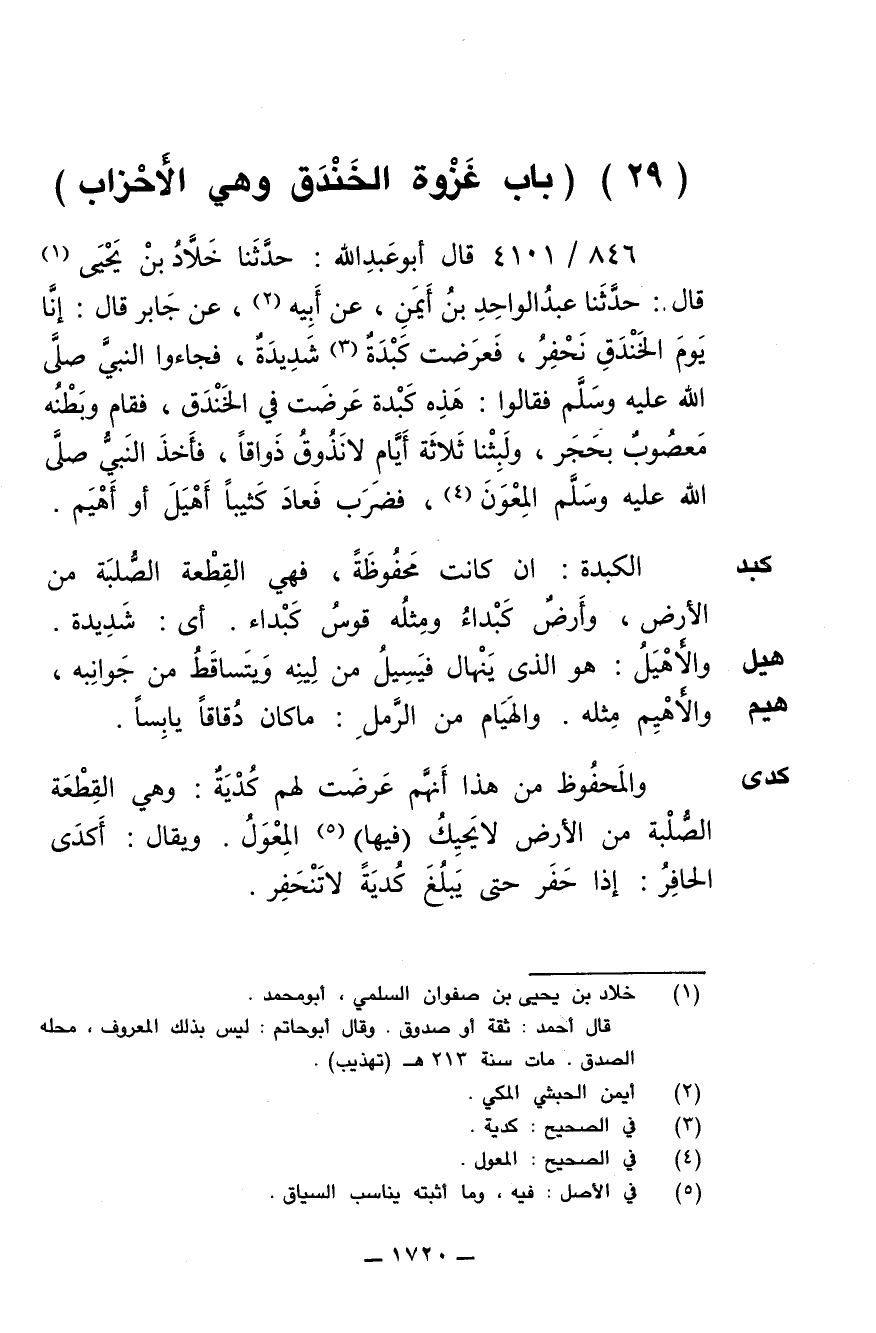 ( ٢٩ ) ( باب غَزْوة الخَنْدَق وهي الأَحْزاب )
٨٤٦ / ٤١٠١ قال أبوعَبدِالله : حدَّثَنا خَلَّادُ بنْ يَحْيَى (١)
قال : حدَّثَنا عبدُالواحِدِ بنُ أَيمَنِ ، عن أَبِيه (٢) ، عن جَابر قال : إنَّا
يَومَ الخَندَقِ نَحْفِرُ ، فَعرَضت كَبْدَةٌ (٣) شَدِيدَةٌ ، فجاءوا النبيَّ صلَّى
الله عليه وسَلَّم فقالوا : هَذِه كَبْدة عَرضَت في الخَنْدَق ، فقام وبَطْنُه
مَعصُوبٌ بحَجَر ، ولَبِثْنا ثَلاثَة أَيَّام لانَذُوقُ ذَواقاً ، فأَخذَ النَبيُّ صلَّى
الله عليه وسَلَّم المِعْوَنَ (٤) ، فضَرَب فَعادَ كَثيباً أَهْيَلَ أو أَهْيَم .
كبد الكبدة : ان كانت مَحفُوظَةً ، فهي القِطْعة الصُّلبَة من
الأرض ، وأَرضٌ كَبْداءُ ومِثلُه قوسُ كَبْداء . أى : شَدِيدة .
هيل والأَهْيَلُ : هو الذى يَنْهال فيَسِيلُ من لِينِه وَيتَساقَطُ من جَوانِبه ،
هيم والأَهْيِم مِثله . والهَيَام من الرَّمل : ماكان دُقاقاً يابِساً .
كدى والمَحفُوظ من هذا أَنهَّم عَرضَت لهم كُدْيَةٌ : وهي القِطْعَة
الصُّلْبة من الأرض لايَحِيكُ (فيها) (٥) المِعْوَلُ . ويقال : أَكدَى
الحافِرُ : إذا حَفَر حتى يَبلُغَ كُديَةً لاتَنْحَفِر .
(١) خلاد بن يحيى بن صفوان السلمي ، أبومحمد .
قال أحمد : ثقة أو صدوق . وقال أبوحاتم : ليس بذلك المعروف ، محله
الصدق . مات سنة ٢١٣ هـ (تهذيب) .
(٢) أيمن الحبشي المكي .
(٣) في الصحيح : كدية .
(٤) في الصحيح : المعول .
(٥) في الأصل : فيه ، وما أثبته يناسب السياق .
ــ ١٧٢٠ ــ